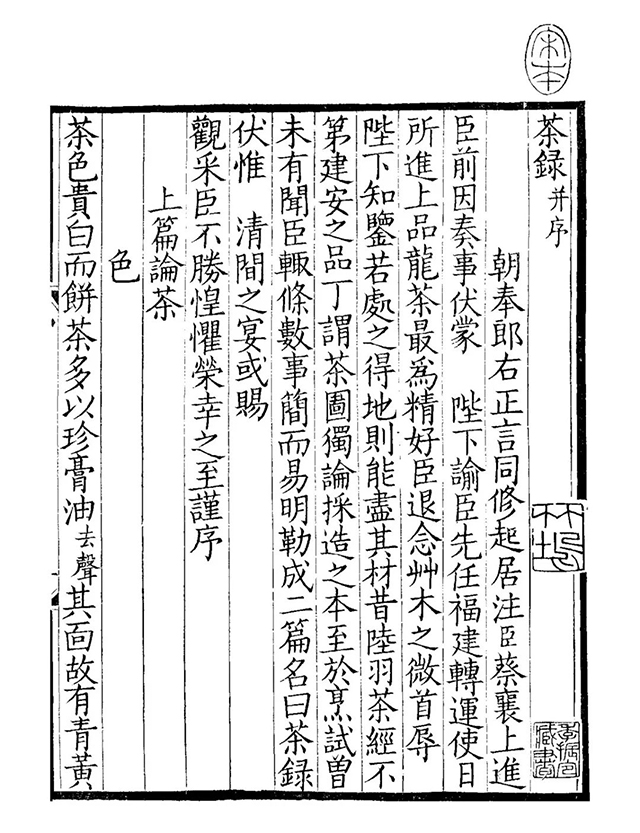 茶録 并序
朝奉郎右正言同修起居注臣蔡襄上進
臣前因奏事伏蒙 陛下諭臣先任福建轉運使日
所進上品龍茶最爲精好臣退念艸木之微首辱
陛下知鑒若處之得地則能盡其材昔陸羽茶經不
第建安之品丁謂茶圖獨論採造之本至於烹試曾
未有聞臣輙條數事簡而易明勒成二篇名曰茶録
伏惟 清閒之宴或賜
觀采臣不勝惶懼榮幸之至謹序
上篇論茶
色
茶色貴白而餅茶多以珍膏油去聲其面故有青黃
宋本